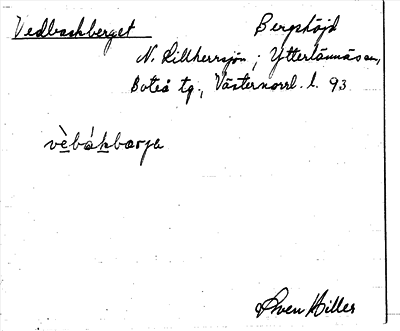 Vedbackberget Bergshöjd
N. Lillherrsjön; Ytterlännäs sn,
Boteå tg., Västernorrl. l. 93
vèbákbærja
Sven Hiller